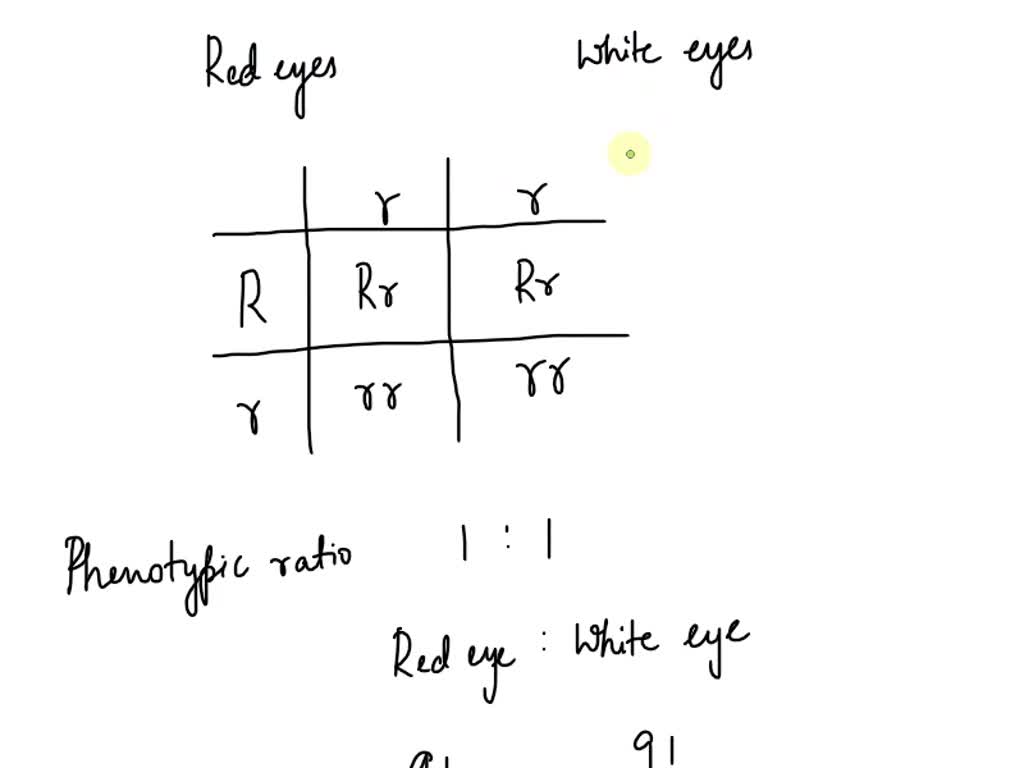 Red eyes White eyes
r r
R Rr Rr
r rr rr
Phenotypic ratio 1 : 1
Red eye : White eye
91